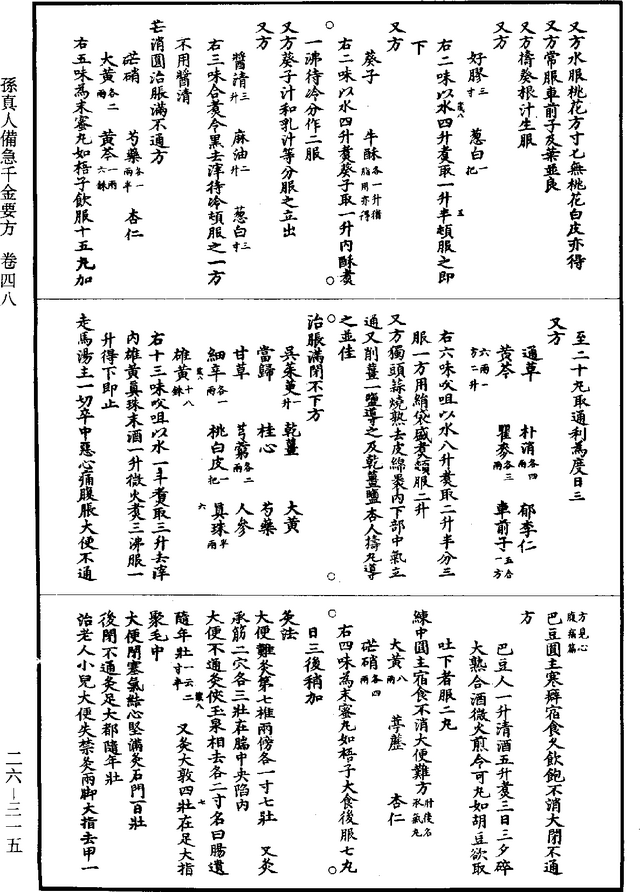 孫真人備急千金要方　卷四八
又方水服桃花方寸匕無桃花白皮亦得
又方常服車前子及葉並良
又方擣葵根汁生服
又方
好膠三寸　葱白一把
右二味以水四升煑取一升半頓服之即
下
又方
葵子　牛酥各一升猪脂用亦得
右二味以水四升煑葵子取一升內酥煑
一沸待冷分作二服
又方葵子汁和乳汁等分服之立出
又方
醬清三升　麻油二升　葱白三寸
右三味合煑令黑去滓待冷頓服之一方
不用醬清
芒消圓治脹滿不通方
芒硝　芍藥各一兩半　杏仁
大黃各二兩　黃芩一兩六銖
右五味為末蜜丸如梧子飲服十五丸加
至二十丸取通利為度日三
又方
通草　朴消各四兩　郁李仁
黃芩　瞿麥各三兩　車前子五合一方
六兩一方二升
右六味㕮咀以水八升煑取二升半分三
服一方用絹袋盛煑頓服二升
又方獨頭蒜燒熟去皮綿裹內下部中氣立
通又削薑一鹽導之及乾薑鹽杏人擣丸導
之並佳
治脹滿閉不下方
吳茱萸一升　乾薑　大黃
當歸　桂心　芍藥
甘草　芎藭各二兩　人參
細辛各一兩　桃白皮一把　真珠半兩
雄黃十八銖
右十三味㕮咀以水一斗煑取三升去滓
內雄黃真珠末酒一升微火煑三沸服一
升得下即止
走馬湯主一切卒中惡心痛腹脹大便不通
方見心腹痛篇
巴豆圓主寒癖宿食久飲飽不消大閉不通
方
巴豆人一升清酒五升煑三日三夕碎
大熟合酒微火煎令可丸如胡豆欲取
吐下者服二丸
練中圓主宿食不消大便難方肘後名承氣丸
大黃八兩　葶藶　杏仁
芒硝各四兩
右四味為末蜜丸如梧子大食後服七丸
日三後稍加
灸法
大便難灸第七椎兩傍各一寸七壯　又灸
承筋二穴各三壯在腨中央陷內
大便不通灸俠玉泉相去各二寸名曰腸遺
隨年壯一云二寸半　又灸大敦四壯在足大指
聚毛中
大便閉塞氣結心堅滿灸石門百壯
後閉不通灸足大都隨年壯
治老人小兒大便失禁灸兩脚大指去甲一
二六—三一五